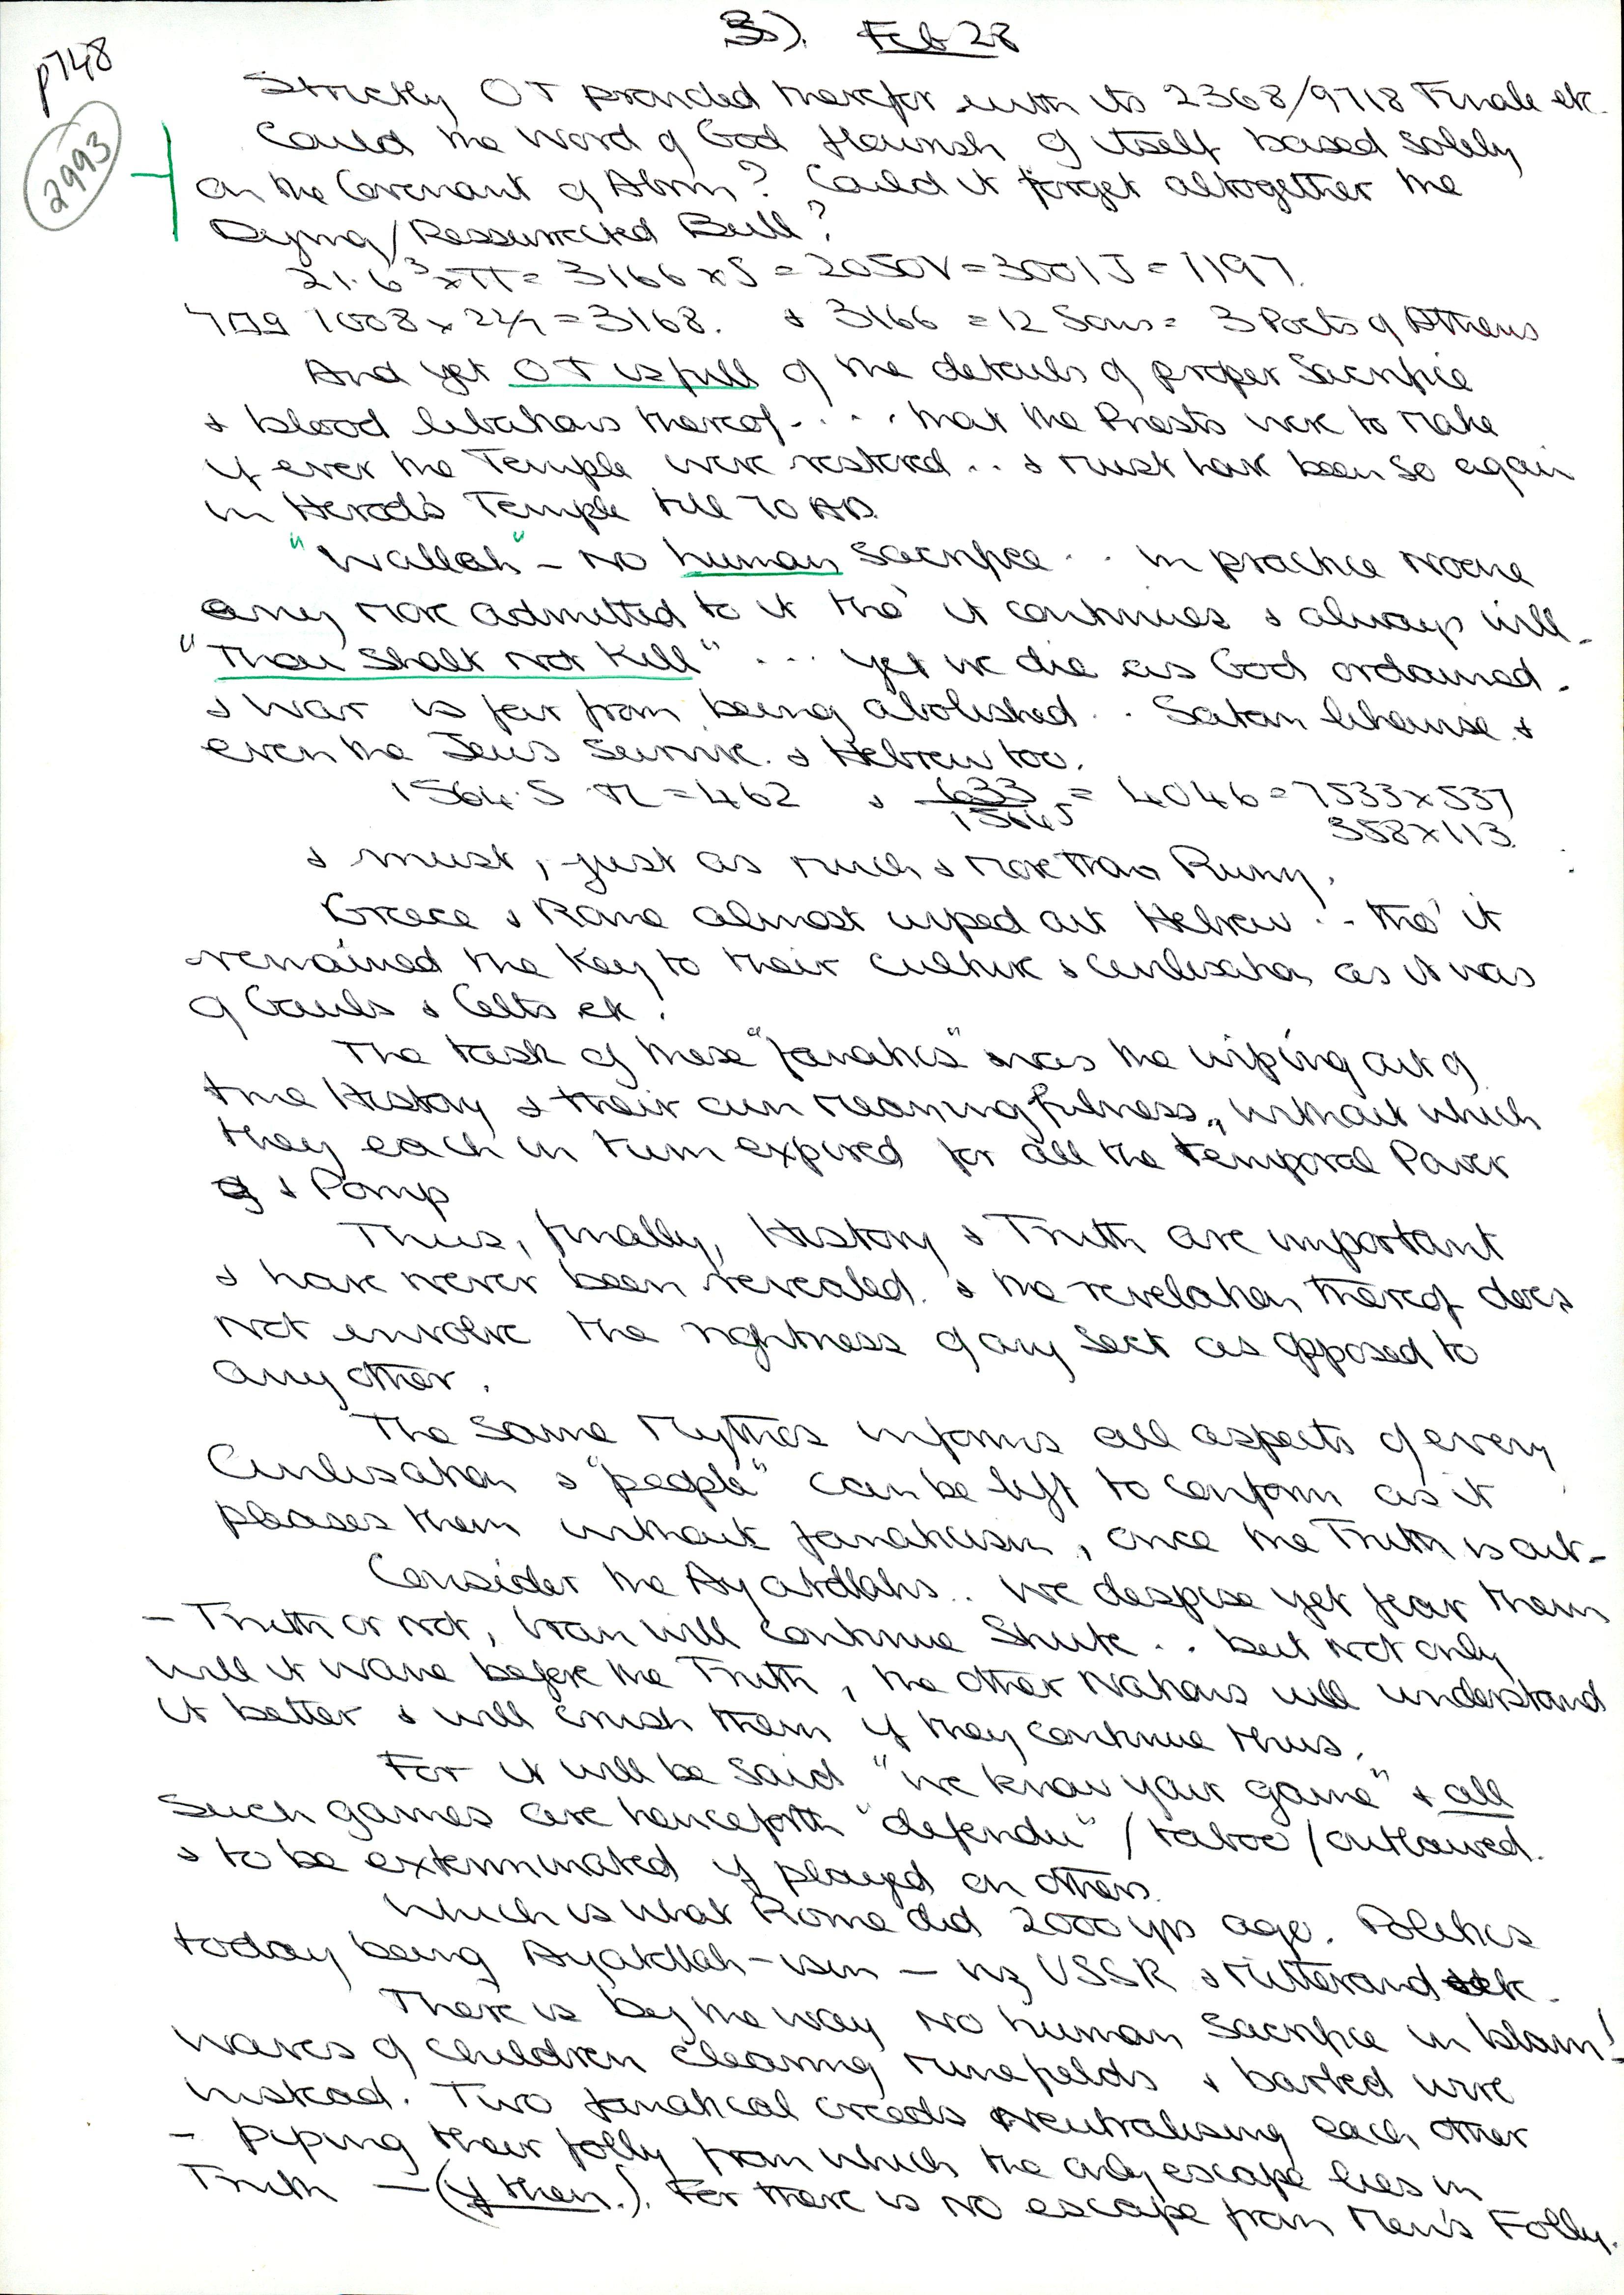 3). Feb 28
p748
2993
Strictly OT provided therefor with its 2368/9718 Finale etc.
Could the Word of God flourish of itself based solely
on the Covenant of Abm? Could it forget altogether the
Dying/Ressurrected Bull?
21.6³xπ = 3166 x S = 2050V = 3001 J = 1197.
1008 x 22/7 = 3168. & 3166 = 12 Sons = 3 Poets of Athens
And yet OT is full of the details of proper Sacrifice
& blood libations thereof . . . . that the Priests were to make
if ever the Temple were restored . . & must have been so again
in Herod's Temple till 70 AD.
"Wallah" - No human sacrifice . . in practice Noone
any more admitted to it tho' it continues & always will.
"Thou Shalt not Kill" . . . yet we die as God ordained.
& War is far from being abolished . . Satan likewise &
even the Jews survive. & Hebrew too.
1564.5 π = 462 & 633/1564.5 = 4046 = 7533 x 537
358 x 113.
& must, just as much & more than Runy.
Greece & Rome almost wiped out Hebrew . . tho' it
remained the Key to their culture & civilisation as it was
of Gauls & Celts etc.
The task of these "fanatics" was the wiping out of
true History & their own meaningfulness, without which
they each in turn expired for all the temporal Power
& Pomp
Thus, finally, History & Truth are important
& have never been revealed. & the revelation thereof does
not involve the rightness of any Sect as opposed to
any other.
The same Mythos informs all aspects of every
Civilisation & "people" can be left to conform as it
pleases them without fanaticism, once the Truth is out.
Consider the Ayatollahs . . We despise yet fear them
- Truth or not, Iran will continue Shiite . . but not only
will it wane before the Truth, the other Nations will understand
it better & will crush them if they continue thus.
For it will be said "We know your game" & all
such games are henceforth "defendu" / taboo / outlawed.
& to be exterminated if played on others.
Which is what Rome did 2000 yrs ago. Politics
today being Ayatollah-ism — viz USSR & Mitterand etc.
There is by the way No human sacrifice in Islam!
Waves of children clearing minefields & barbed wire
instead. Two fanatical creeds Neutralising each other
- piping their folly from which the only escape lies in
Truth — (if then.). For there is no escape from Men's Folly.